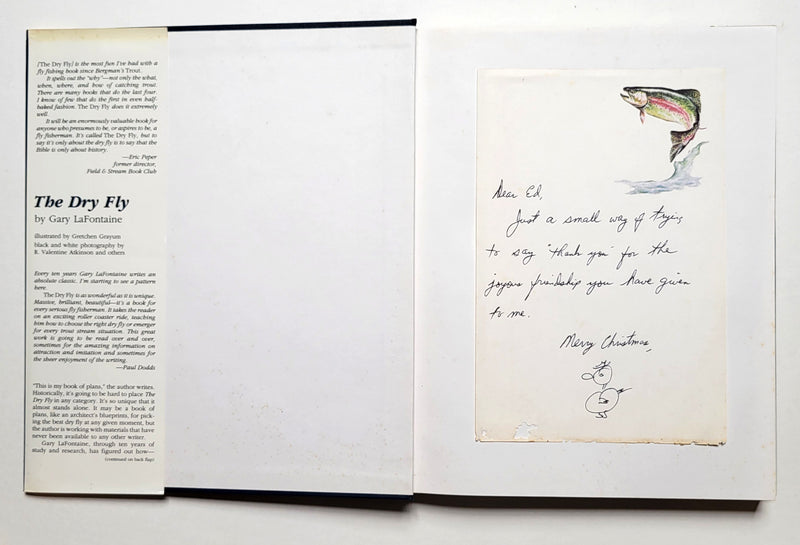 [The Dry Fly] is the most fun I've had with a
fly fishing book since Bergman's Trout.
It spells out the "why"—not only the what,
when, where, and how of catching trout.
There are many books that do the last four.
I know of few that do the first in even half-
baked fashion. The Dry Fly does it extremely
well.
It will be an enormously valuable book for
anyone who presumes to be, or aspires to be, a
fly fisherman. It's called The Dry Fly, but to
say it's only about the dry fly is to say that the
Bible is only about history.
—Eric Peper
former director,
Field & Stream Book Club
The Dry Fly
by Gary LaFontaine
illustrated by Gretchen Grayum
black and white photography by
R. Valentine Atkinson and others
Every ten years Gary LaFontaine writes an
absolute classic. I'm starting to see a pattern
here.
The Dry Fly is as wonderful as it is unique.
Massive, brilliant, beautiful—it's a book for
every serious fly fisherman. It takes the reader
on an exciting roller coaster ride, teaching
him how to choose the right dry fly or emerger
for every trout stream situation. This great
work is going to be read over and over,
sometimes for the amazing information on
attraction and imitation and sometimes for
the sheer enjoyment of the writing.
—Paul Dodds
"This is my book of plans," the author writes.
Historically, it's going to be hard to place The
Dry Fly in any category. It's so unique that it
almost stands alone. It may be a book of
plans, like an architect's blueprints, for pick-
ing the best dry fly at any given moment, but
the author is working with materials that have
never been available to any other writer.
Gary LaFontaine, through ten years of
study and research, has figured out how—
(continued on back flap)
Dear Ed,
Just a small way of trying
to say "thank you" for the
joyous friendship you have given
to me.
Merry Christmas,